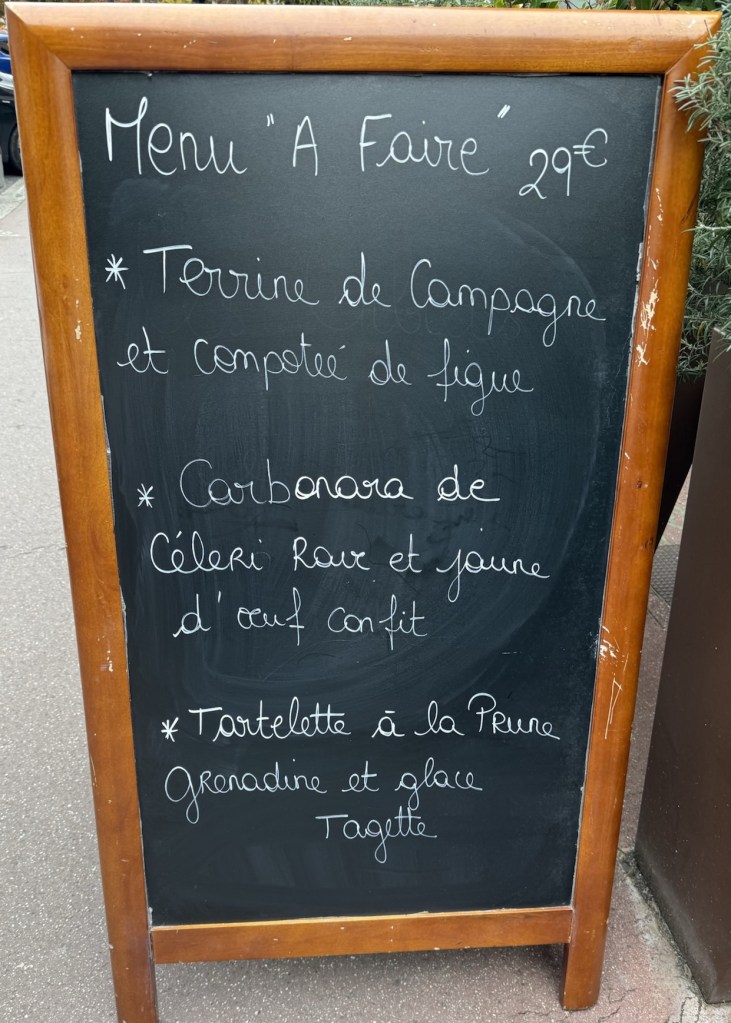 Menu "A Faire" 29€
* Terrine de Campagne
et compoteé de figue
* Carbonara de
Céleri Rave et jaune
d'œuf confit
* Tartelette à la Prune
Grenadine et glace
Tagette